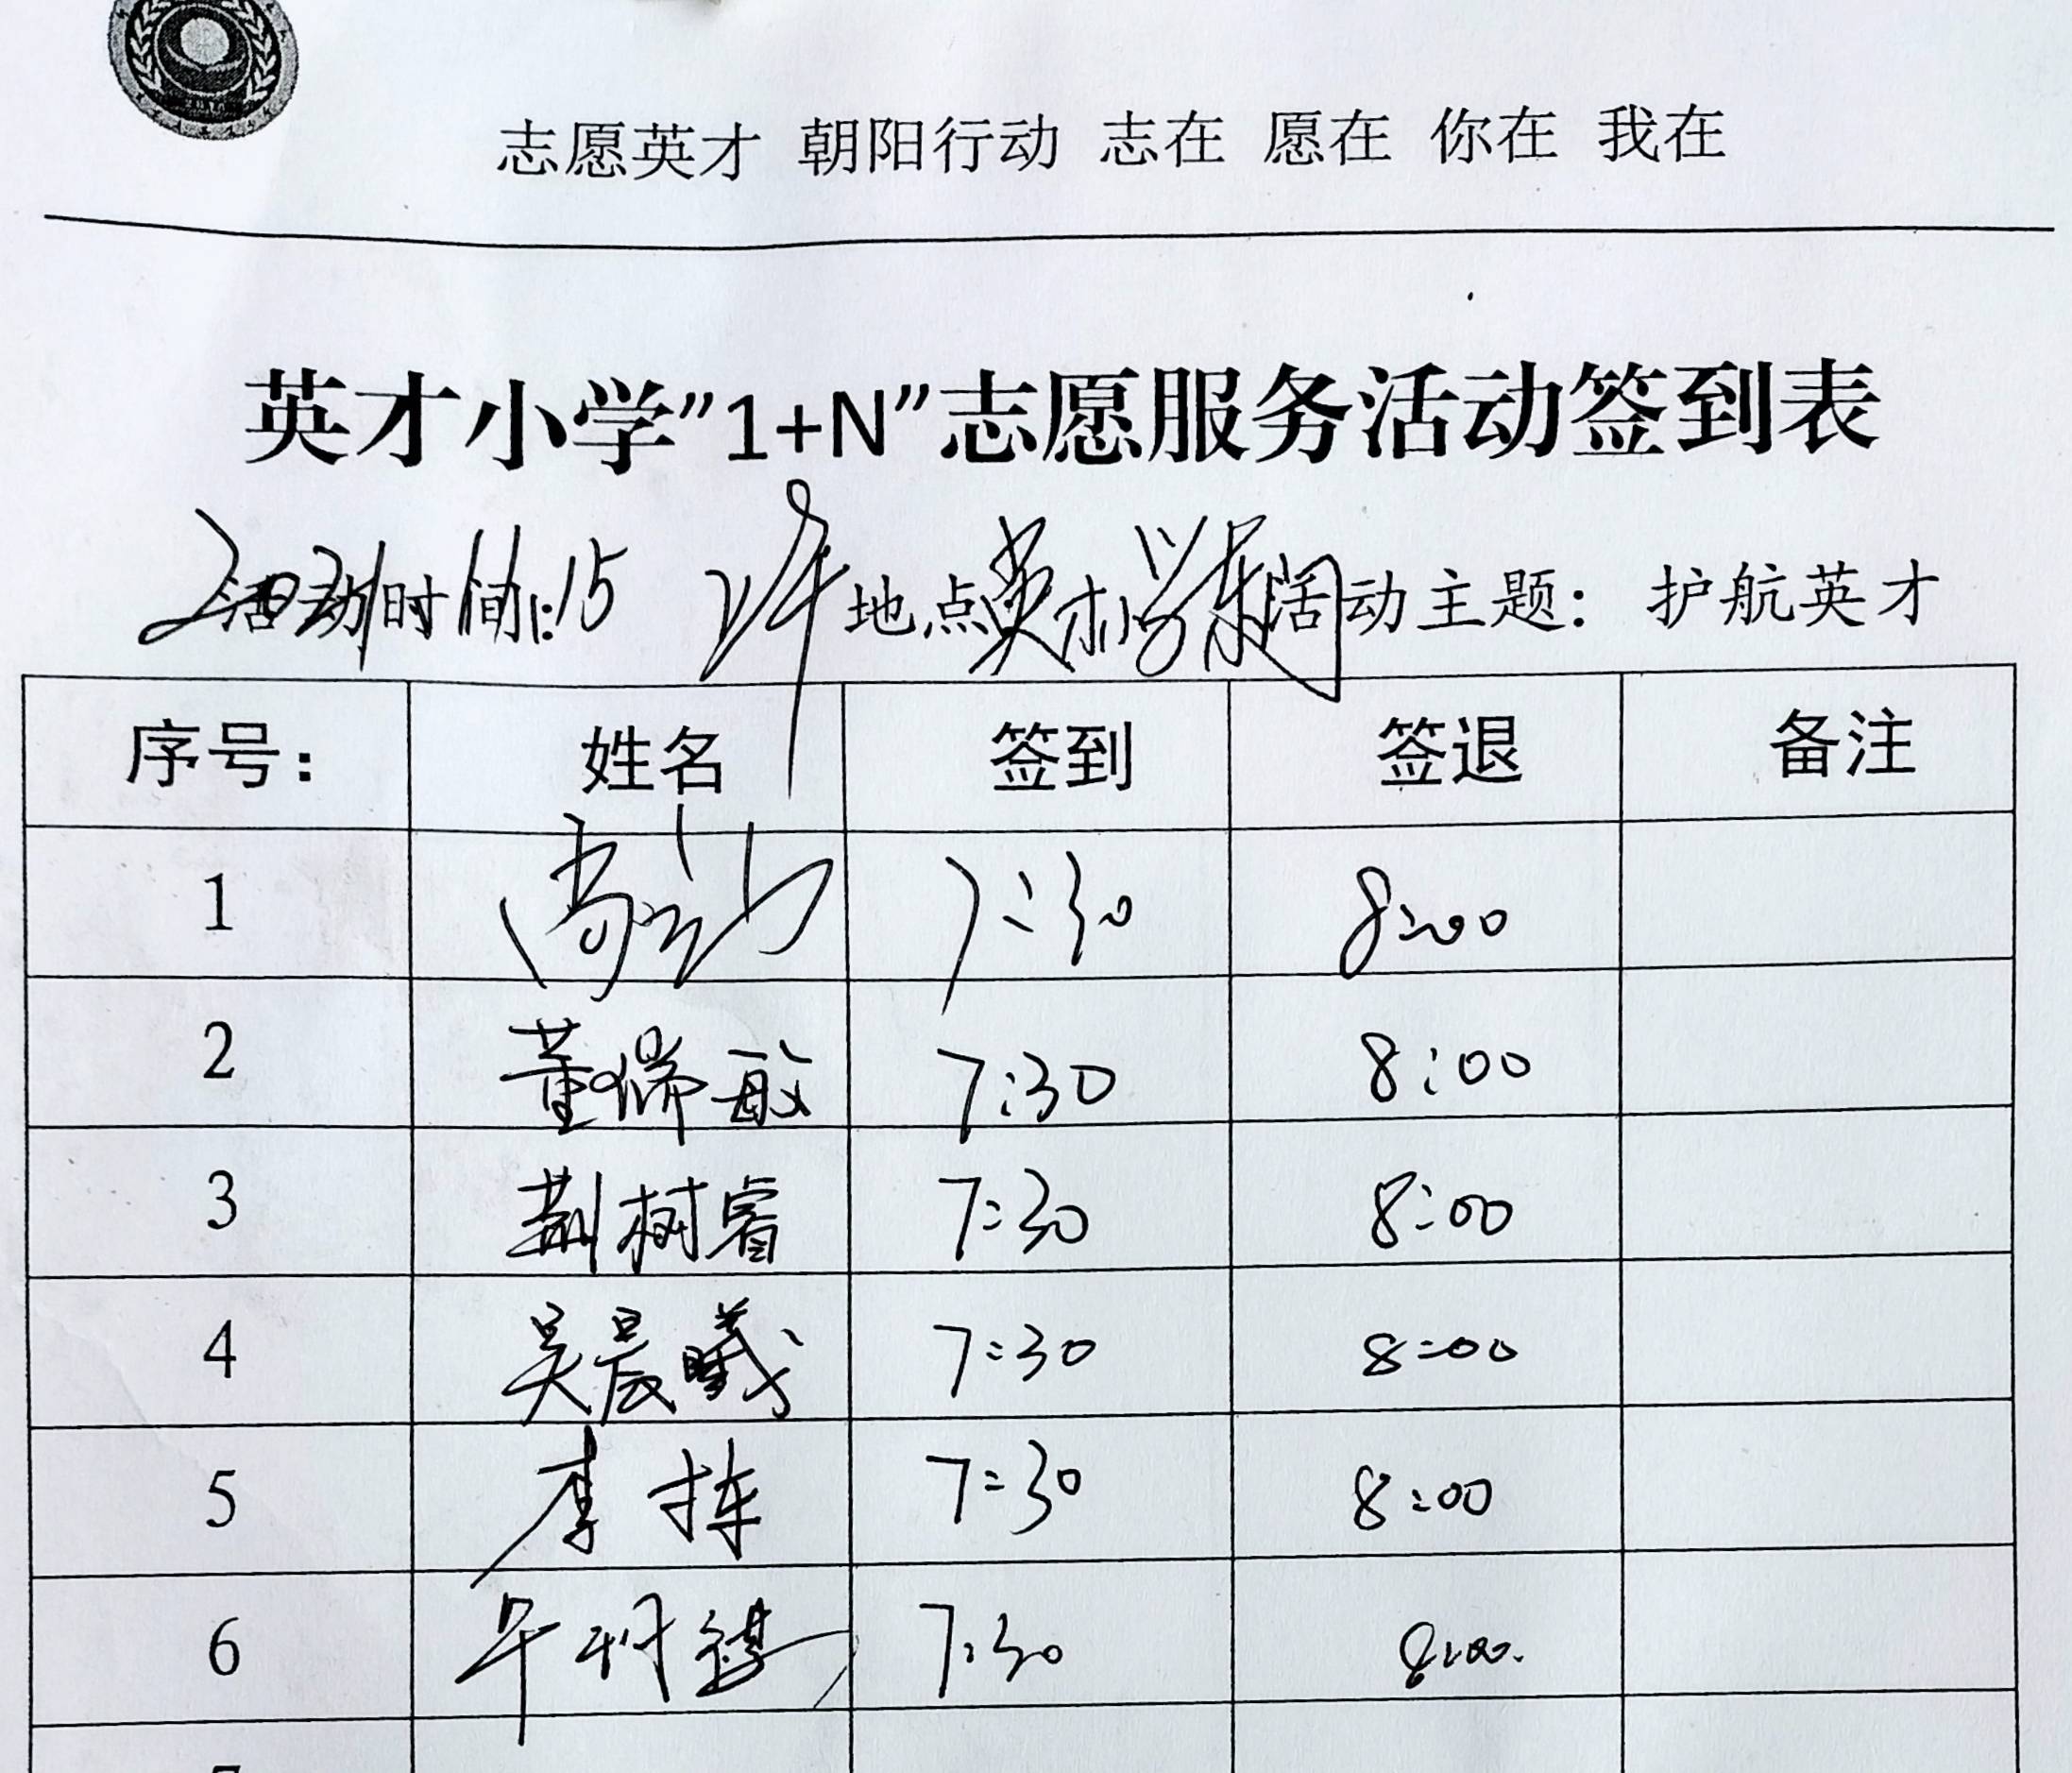 志愿英才 朝阳行动 志在 愿在 你在 我在
英才小学"1+N"志愿服务活动签到表
活动时间: 15 地点 英才小学东 活动主题: 护航英才
序号: 姓名 签到 签退 备注
1 7:30 8:00
2 董瑞敏 7:30 8:00
3 荆树睿 7:30 8:00
4 吴晨曦 7:30 8:00
5 李栋 7:30 8:00
6 7:30 8:00